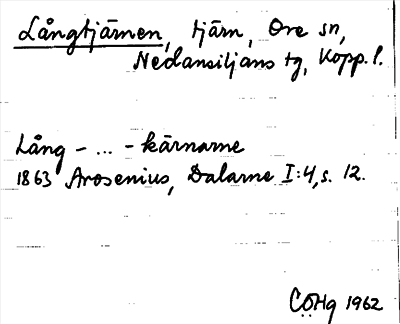 Långtjärnen, tjärn, Ore sn,
Nedansiljans tg, Kopp. l.
Lång - ... - kärnarne
1863 Arosenius, Dalarne I:4, s. 12.
CÖHg 1962